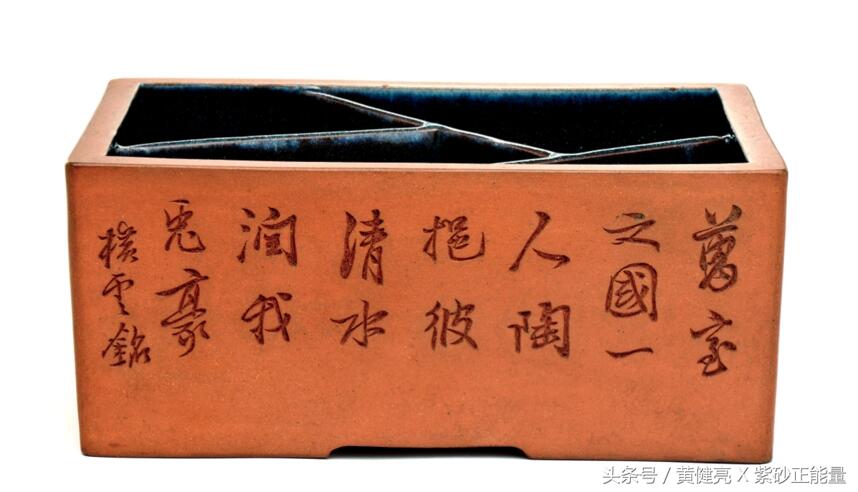 萬室
之國一
人陶
挹彼
清水
潤我
兎豪
横雲銘
头条号 / 黄健亮 X 紫砂正能量